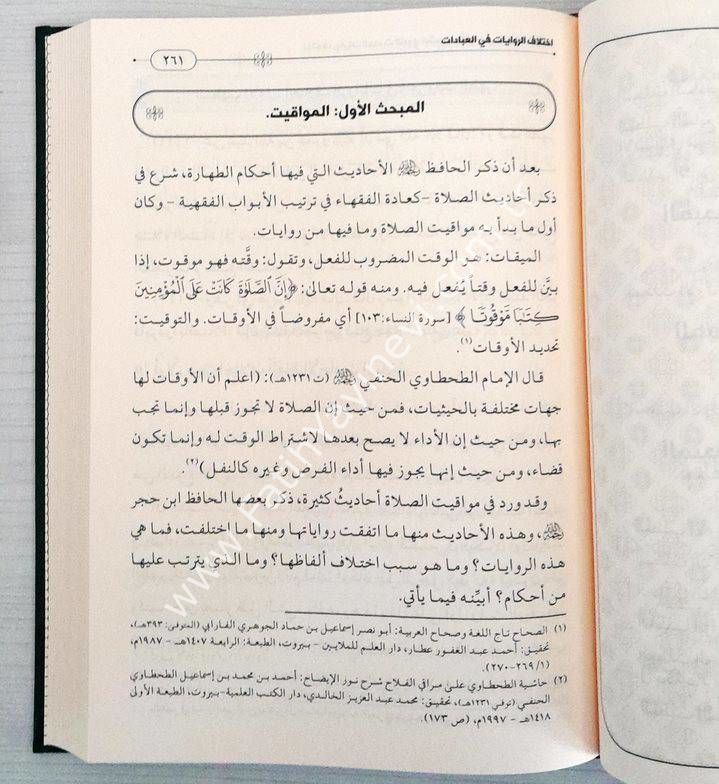 اختلاف الروايات في العبادات
٢٦١
المبحث الأول: المواقيت.
بعد أن ذكر الحافظ رحمه الله الأحاديث التي فيها أحكام الطهارة، شرع في
ذكر أحاديث الصلاة –كعادة الفقهاء في ترتيب الأبواب الفقهية – وكان
أول ما بدأ به مواقيت الصلاة وما فيها من روايات.
الميقات: هو الوقت المضروب للفعل، وتقول: وقَّته فهو موقوت، إذا
بيَّن للفعل وقتاً يُفعل فيه. ومنه قوله تعالى: ﴿إِنَّ ٱلصَّلَوٰةَ كَانَتْ عَلَى ٱلْمُؤْمِنِينَ
كِتَٰبًا مَّوْقُوتًا ﴾ [سورة النساء:١٠٣] أي مفروضاً في الأوقات. والتوقيت:
تحديد الأوقات(١).
قال الإمام الطحطاوي الحنفي رحمه الله (ت ١٢٣١هـ): (اعلم أن الأوقات لها
جهات مختلفة بالحيثيات، فمن حيث إن الصلاة لا تجوز قبلها وإنما تجب
بها، ومن حيث إن الأداء لا يصح بعدها لاشتراط الوقت له وإنما تكون
قضاء، ومن حيث إنها يجوز فيها أداء الفرض وغيره كالنفل)(٢).
وقد ورد في مواقيت الصلاة أحاديثُ كثيرة، ذكر بعضها الحافظ ابن حجر
رحمه الله، وهذه الأحاديث منها ما اتفقت رواياتها ومنها ما اختلفت، فما هي
هذه الروايات؟ وما هو سبب اختلاف ألفاظها؟ وما الذي يترتب عليها
من أحكام؟ أبيِّنه فيما يأتي.
(١) الصحاح تاج اللغة وصحاح العربية: أبو نصر إسماعيل بن حماد الجوهري الفارابي (المتوفى: ٣٩٣هـ)،
تحقيق: أحمد عبد الغفور عطار، دار العلم للملايين – بيروت، الطبعة: الرابعة ١٤٠٧هـ – ١٩٨٧م،
(١/ ٢٦٩–٢٧٠).
(٢) حاشية الطحطاوي على مراقي الفلاح شرح نور الإيضاح: أحمد بن محمد بن إسماعيل الطحطاوي
الحنفي (توفي ١٢٣١هـ)، تحقيق: محمد عبد العزيز الخالدي، دار الكتب العلمية–بيروت، الطبعة الأولى
١٤١٨هـ – ١٩٩٧م، (ص ١٧٣).